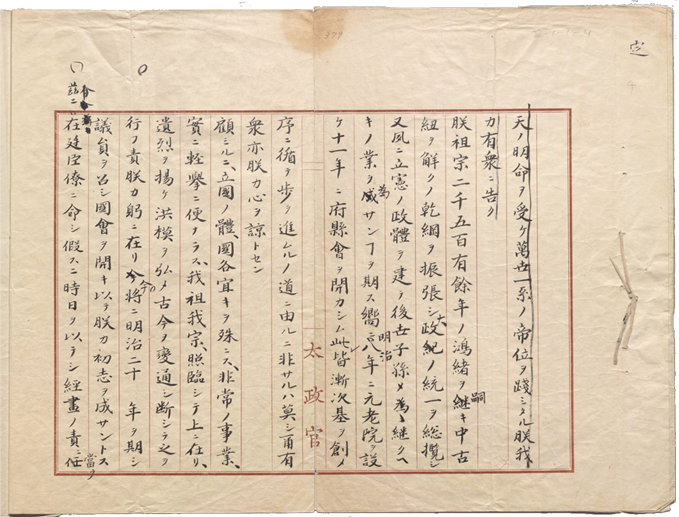 定
天ノ明命ヲ受ケ萬世一系ノ帝位ヲ踐ミタル朕我
カ有衆ニ告ク
朕祖宗二千五百有餘年ノ鴻緒ヲ継キ中古
嗣
紐ヲ解クノ乾綱ヲ振張シ政紀ノ統一ヲ総攬シ
大
又夙ニ立憲ノ政體ヲ建テ後世子孫ノ為メ継クヘ
キノ業ヲ成サンヿヲ期ス嚮ニ八年ニ元老院ヲ設
為
明治
ケ十一年ニ府縣會ヲ開カシム此皆漸次基ヲ創メ
太政官
序ニ循テ歩ヲ進ムルノ道ニ由ルニ非サルハ莫シ爾有
衆亦朕カ心ヲ諒トセン
顧ミルニ立國ノ體、國各宜キヲ殊ニス、非常ノ事業、
實ニ輕擧ニ便ナラス、我祖我宗、照臨シテ上ニ在リ、
遺烈ヲ揚ケ洪模ヲ弘メ古今ヲ變通シ断シテ之ヲ
行フ責朕カ躬ニ在リ今将ニ明治二十 年ヲ期シ
議員ヲ召シ國會ヲ開キ以テ朕カ初志ヲ成サントス
今
茲ニ
在廷臣僚ニ命シ假スニ時日ヲ以テシ經畫ノ責ニ任
當